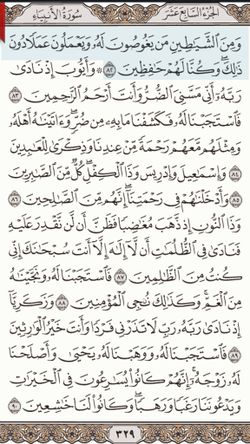 الجُزْءُ السَّابِعَ عَشَرَ سُورَةُ الأَنبِيَاءِ
وَمِنَ ٱلشَّيَٰطِينِ مَن يَغُوصُونَ لَهُۥ وَيَعْمَلُونَ عَمَلًا دُونَ
ذَٰلِكَۖ وَكُنَّا لَهُمْ حَٰفِظِينَ ٨٢ ۞ وَأَيُّوبَ إِذْ نَادَىٰ
رَبَّهُۥٓ أَنِّي مَسَّنِيَ ٱلضُّرُّ وَأَنتَ أَرْحَمُ ٱلرَّٰحِمِينَ ٨٣
فَٱسْتَجَبْنَا لَهُۥ فَكَشَفْنَا مَا بِهِۦ مِن ضُرٍّۖ وَءَاتَيْنَٰهُ أَهْلَهُۥ
وَمِثْلَهُم مَّعَهُمْ رَحْمَةً مِّنْ عِندِنَا وَذِكْرَىٰ لِلْعَٰبِدِينَ ٨٤
وَإِسْمَٰعِيلَ وَإِدْرِيسَ وَذَا ٱلْكِفْلِۖ كُلٌّ مِّنَ ٱلصَّٰبِرِينَ ٨٥
وَأَدْخَلْنَٰهُمْ فِي رَحْمَتِنَآۖ إِنَّهُم مِّنَ ٱلصَّٰلِحِينَ ٨٦
وَذَا ٱلنُّونِ إِذ ذَّهَبَ مُغَٰضِبًا فَظَنَّ أَن لَّن نَّقْدِرَ عَلَيْهِ
فَنَادَىٰ فِي ٱلظُّلُمَٰتِ أَن لَّآ إِلَٰهَ إِلَّآ أَنتَ سُبْحَٰنَكَ إِنِّي
كُنتُ مِنَ ٱلظَّٰلِمِينَ ٨٧ فَٱسْتَجَبْنَا لَهُۥ وَنَجَّيْنَٰهُ
مِنَ ٱلْغَمِّۚ وَكَذَٰلِكَ نُۨجِي ٱلْمُؤْمِنِينَ ٨٨ وَزَكَرِيَّآ
إِذْ نَادَىٰ رَبَّهُۥ رَبِّ لَا تَذَرْنِي فَرْدًا وَأَنتَ خَيْرُ ٱلْوَٰرِثِينَ
٨٩ فَٱسْتَجَبْنَا لَهُۥ وَوَهَبْنَا لَهُۥ يَحْيَىٰ وَأَصْلَحْنَا
لَهُۥ زَوْجَهُۥٓۚ إِنَّهُمْ كَانُوا۟ يُسَٰرِعُونَ فِي ٱلْخَيْرَٰتِ
وَيَدْعُونَنَا رَغَبًا وَرَهَبًاۖ وَكَانُوا۟ لَنَا خَٰشِعِينَ ٩٠
٣٢٩